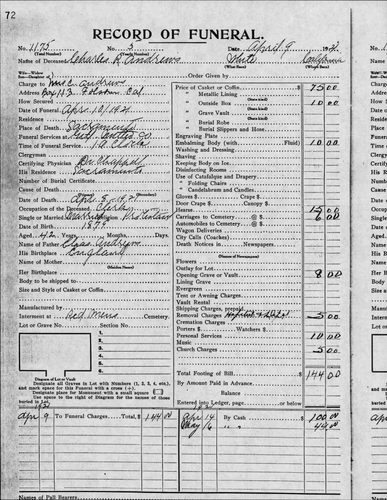 72
RECORD OF FUNERAL.
No. 1175 No. 3 Date April 9 1921
Name of Deceased Charles R. Andrews White California
Charge to Mrs C. Andrews Order Given by
Address Box 113 Folsom Cal. Price of Casket or Coffin $ 75 00
How Secured " Metallic Lining
Date of Funeral Apr. 10/1921 " Outside Box 10 00
Residence " Grave Vault
Place of Death Sacramento " Burial Robe
Funeral Services at " Burial Slippers and Hose
Time of Funeral Service 1 O.Clock Engraving Plate
Clergyman Embalming Body (with Fluid) 10 00
Certifying Physician Washing and Dressing
His Residence Sacramento Shaving
Number of Burial Certificate Keeping Body on Ice
Cause of Death Disinfecting Rooms
Date of Death April 5-1921 Use of Catafalque and Drapery
Occupation of the Deceased Clerk " Folding Chairs
Single or Married Married Religion Protestant " Candelabrum and Candles
Date of Birth 1879 Gloves $ Crape $
Aged 42 Years Months, Days. Door Crape $ Canopy $
Name of Father Chas. Andrews Hearse 15 00
His Birthplace England Carriages to Cemetery @ $ 6 00
Name of Mother Automobiles to Cemetery @ $
Her Birthplace Wagon Deliveries
Body to be shipped to City Calls (Coaches)
Size and Style of Casket or Coffin Death Notices in Newspapers
Manufactured by Flowers
Interment at Red Mens Cemetery Outlay for Lot
Lot or Grave No. Section No. Opening Grave or Vault 8 00
1. Lining Grave
2. Evergreen
3. Tent or Awning Charges
4. Vault Rental
5. Shipping Charges, prepaid
6. Removal Charges 5 00
Diagram of Lot or Vault Cremation Charges
Designate all Graves in Lot with Numbers (1, 2, 3, 4, etc.), Porters $ Watchers $
and mark space for this Funeral with a cross (+). Personal Services 10 00
Designate place for Monument with a small square Music
Use space to right of Diagram for the names of those Church Charges 5 00
buried in Lot. Total Footing of Bill $ 144 00
By Amount Paid in Advance
Balance
Entered into Ledger, page or below.
1921
Apr 9 To Funeral Charges Total, $ 144 00 Apr 14 By Cash 100 00
May 6 " " 44 00
Names of Pall Bearers